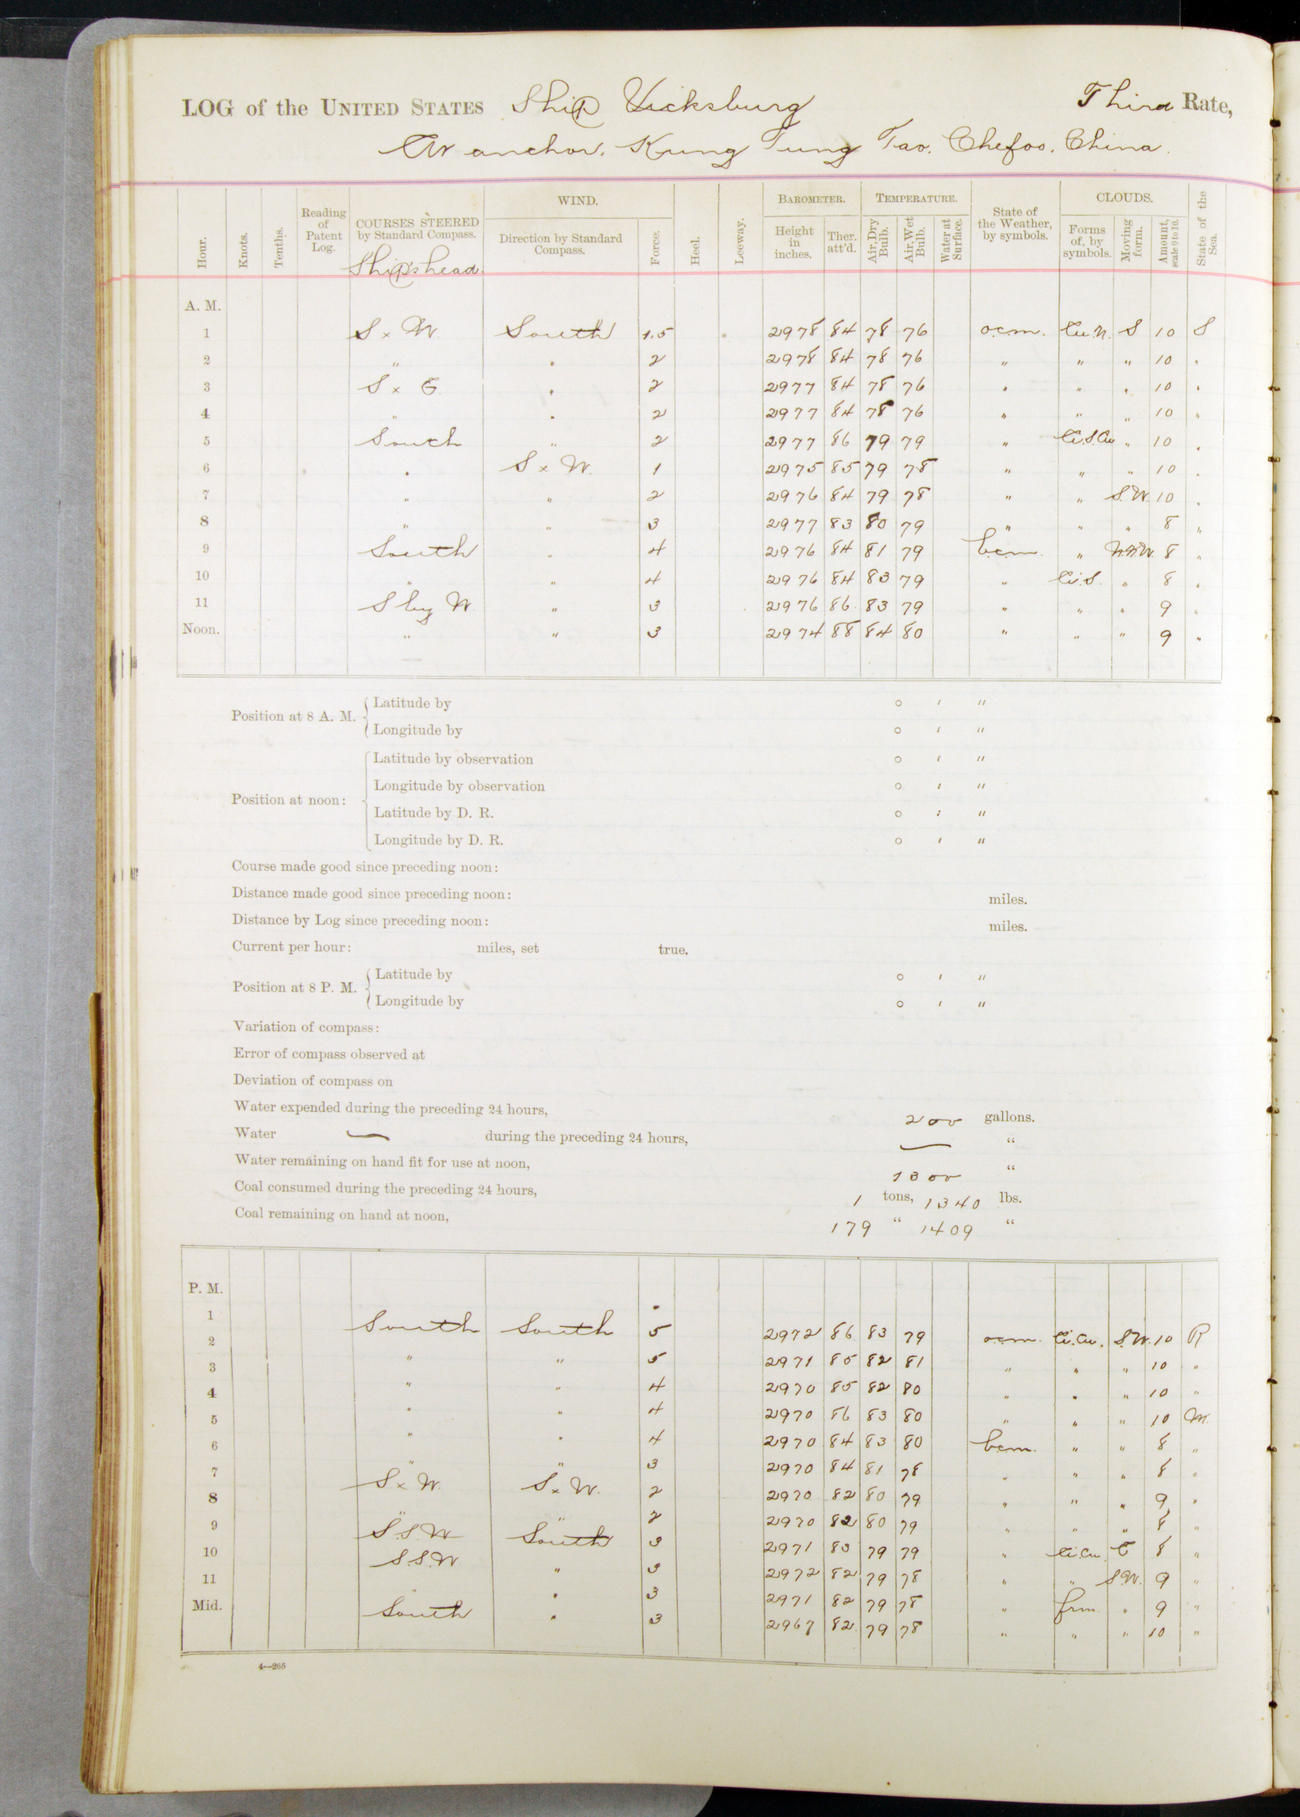 LOG of the UNITED STATES Ship Vicksburg Third Rate,
At anchor. Kung Tung Tao. Chefoo. China.
Hour. Knots. Tenths. Reading of Patent Log. COURSES STEERED by Standard Compass. WIND. Direction by Standard Compass. Force. Heel. Leeway. BAROMETER. Height in inches. Ther. att'd. TEMPERATURE. Air, Dry Bulb. Air, Wet Bulb. Water at Surface. State of the Weather, by symbols. CLOUDS. Forms of, by symbols. Moving form. Amount, scale 0 to 10. State of the Sea.
Ship's head.
A. M.
1 S x W South 1.5 2978 84 78 76 ocm. Cu.N. S 10 S
2 " " 2 2978 84 78 76 " " " 10 "
3 S x E " 2 2977 84 78 76 " " " 10 "
4 " " 2 2977 84 78 76 " " " 10 "
5 South " 2 2977 86 79 79 " Ci.S.Cu " 10 "
6 " S x W. 1 2975 85 79 78 " " " 10 "
7 " " 2 2976 84 79 78 " " S.W. 10 "
8 " " 3 2977 83 80 79 " " " 8 "
9 South " 4 2976 84 81 79 bcm. " N.N.W. 8 "
10 " " 4 2976 84 83 79 " Ci.S. " 8 "
11 S by W " 3 2976 86 83 79 " " " 9 "
Noon. " " 3 2974 88 84 80 " " " 9 "
Position at 8 A. M. Latitude by ° ′ ″
Longitude by ° ′ ″
Position at noon: Latitude by observation ° ′ ″
Longitude by observation ° ′ ″
Latitude by D. R. ° ′ ″
Longitude by D. R. ° ′ ″
Course made good since preceding noon:
Distance made good since preceding noon: miles.
Distance by Log since preceding noon: miles.
Current per hour: miles, set true.
Position at 8 P. M. Latitude by ° ′ ″
Longitude by ° ′ ″
Variation of compass:
Error of compass observed at
Deviation of compass on
Water expended during the preceding 24 hours, 200 gallons.
Water — during the preceding 24 hours, — "
Water remaining on hand fit for use at noon, 1300 "
Coal consumed during the preceding 24 hours, 1 tons, 1340 lbs.
Coal remaining on hand at noon, 179 " 1409 "
P. M.
1 South South 5 2972 86 83 79 ocm. Ci.Cu. S.W. 10 R
2 " " 5 2971 85 82 81 " " " 10 "
3 " " 4 2970 85 82 80 " " " 10 "
4 " " 4 2970 86 83 80 " " " 10 M.
5 " " 4 2970 84 83 80 bcm. " " 8 "
6 " " 3 2970 84 81 78 " " " 8 "
7 S x W. S x W. 2 2970 82 80 79 " " " 9 "
8 " " 2 2970 82 80 79 " " " 8 "
9 S.S.W South 3 2971 83 79 79 " Ci.Cu. E 8 "
10 S.S.W " 3 2972 82 79 78 " " S.W. 9 "
11 " " 3 2971 82 79 78 " frm. " 9 "
Mid. South " 3 2967 82 79 78 " " " 10 "
4—265